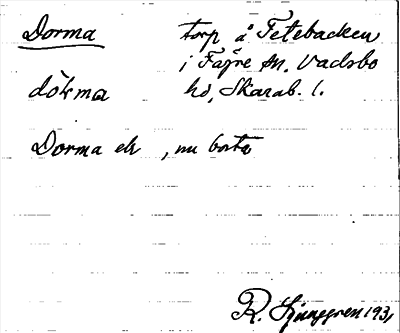 Dorma torp å Fetebacken
i Fägre sn. Vadsbo
dòrma hd, Skarab. l.
Dorma etc , nu borta
R. Ljunggren 1931